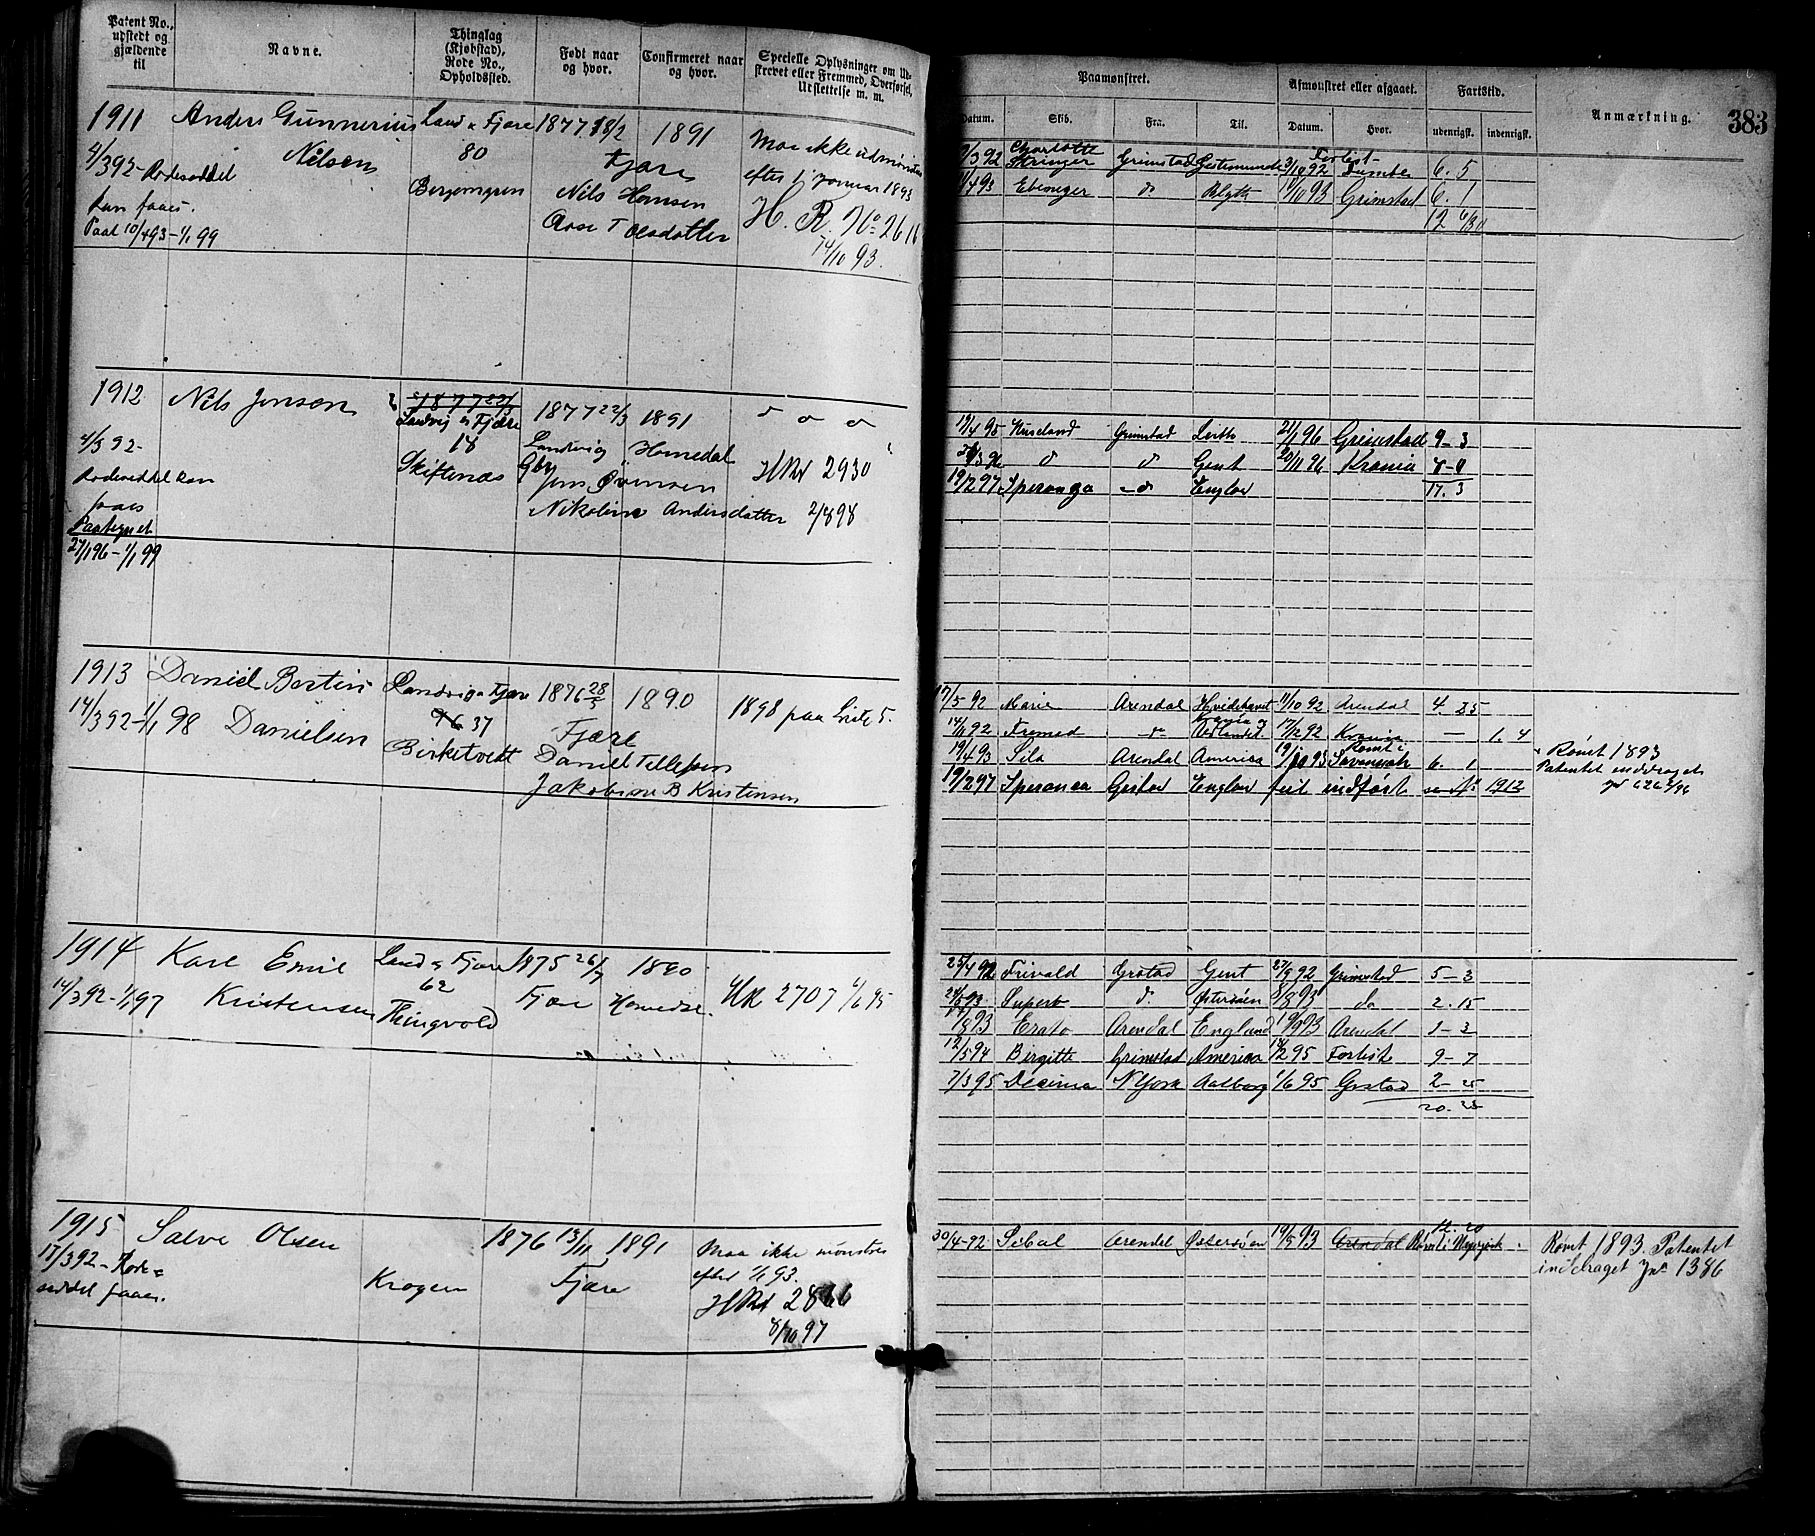 Patent No.,
udstedt og
gjældende
til
Navne.
Thinglag
(Kjøbstad),
Rode No.,
Opholdssted.
Født naar
og hvor.
Confirmeret naar
og hvor.
Specielle Oplysninger om Ud-
skrevet eller Fremmed, Overførsel,
Udslettelse m. m.
1911 Anders Gunnerius Land & Fjære 1877 18/2 1891
Nilsen 80 Fjære
4/3 92 - Rodeseddel Bergemyren Nils Hansen
kun faaes. Olsdatter
Paat 10/4 93 - 1/1 99
Maa ikke udmønstres
efter 1 Januar 1893
H. R. No 2616
14/10 93.
1912 Nils Jensen 1877 22/3
Landvig & Fjære 1877 22/3 1891
18 Landvig Homedal
4/3 92 - Skiftenæs
Rodeseddel kan
faaes Nikoline Andersdatter
HRd 2930
2/8 98
Paategnet
27/1 96 - 1/1 99
1913 Daniel Bertin Landvig & Fjære 1876 28/5 1890
14/3 92 - 1/1 98 Danielsen 96 37 Fjære
Birketvedt Daniel Tellefsen
Jakobine B Kristensen
1898 paa Liste 5.
1914 Karl Emil Land & Fjære 1875 26/7 1890
14/3 92 - 1/1 97 Kristensen 62 Fjære Homedal.
Thingvold
HR 2707 4/6 95
1915 Salve Olsen 1876 13/11 1891
17/3 92 - Rode= Krogen Fjære
seddel faaes.
Maa ikke mønstres
efter 1/1 93.
HRd 2866
8/10 97
Paamønstret.
Afmønstret eller afgaaet.
Fartstid.
Anmærkning.
383
Datum.
Skib.
Fra.
Til.
Datum.
Hvor.
udenrigsk.
indenrigsk.
/3 92 Charlotte Stringer Grimstad Geestemunde 3/10 92 Forlist 6. 5
11/4 93 Ebenezer do Blyth 11/10 93 Grimstad 6. 1
12 6/30
19/4 95 Grimstad Leith 21/1 96 Grimstad 9 - 3
do do Gent 20/11 96 Krania 8 - 0
19/2 97 Speranza - do Englan 17. 3
17/5 92 Marie Arendal Hvidehavet 11/10 92 Arendal 4. 25
14/11 92 Fremad do Krania og Udlandet 17/12 92 Krania — 1. 4
19/4 93 Sila Arendal America 19/10 93 Rømt i Savannah 6. 1
19/2 97 Speranza Gristad Englan feil indført se No 1912
Rømt 1893
Patentet inddraget
25/4 92 Frivald Grstad Gent 27/9 92 Grimstad 5 - 3
24/5 93 Superb do. Østersøen 8/8 93 do 2. 15
/8 93 Erato Arendal England 19/9 93 Arendal 1 - 3
12/5 94 Birgitte Grimstad America 18/2 95 Forlist 9 - 7
7/3 95 Decima N York Aalborg 1/6 95 Grstad 2 - 25
20. 23
30/4 - 92 Sibal Arendal Østersøen 19/5 93 Arendal Rømt i
12. 20
Rømt 1893. Patentet
inddraget Jno 1386